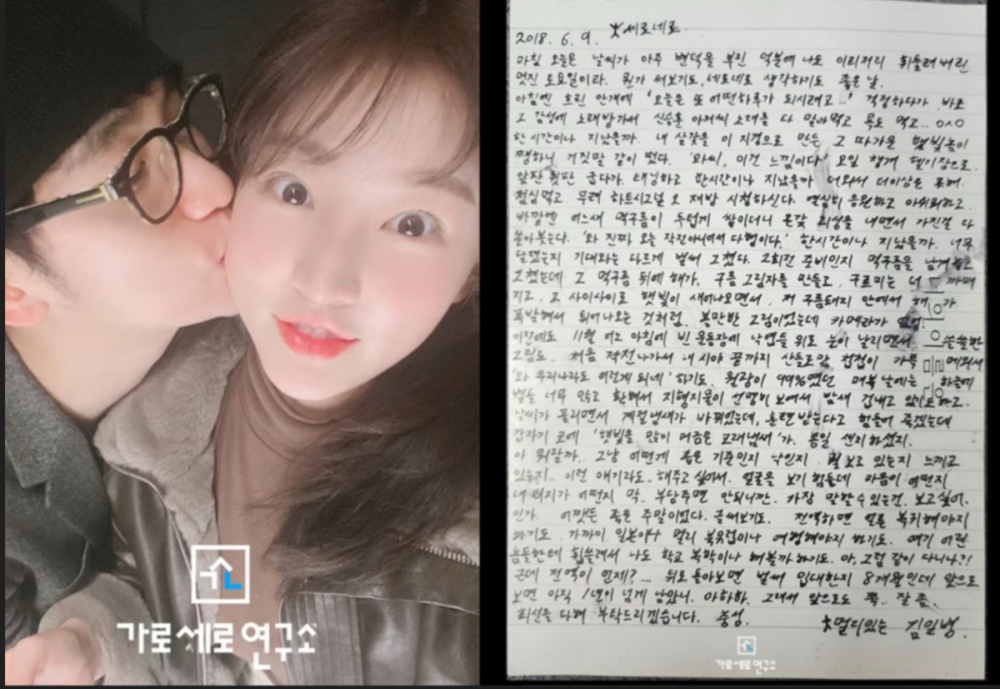 가로세로연구소
2018. 6. 9. 세로네로
마침 오늘은 날씨가 아주 변덕을 부린 덕분에 나도 이리저리 휘둘려버린
멋진 토요일이라. 뭔가 써보기도, 세로네로 생각하기도 좋은 날.
아침엔 흐린 안개에 '오늘은 또 어떤하루가 되시려고...' 걱정하다가 바로
그 감성에 노래방가서 신승훈 아저씨 노래를 다 말아먹고 욕도 먹고.. ^0^
한시간이나 지났을까. 내 살갗을 이 지경으로 만든 그 따가운 햇빛놈이
쨍하니 거짓말 같이 떴다. '와씨, 이건 느낌이다' 오일 챙겨 딸기장으로
앞판 뒷판 굽다가. 태닝하고 한시간이나 지났을까 더워서 더이상은 무리.
점심먹고 무려 하트시그널 2 재방 시청하신다. 열심히 응원하고 아쉬워하고.
바깥엔 어느새 먹구름이 두텁게 쌓이더니 온갖 괴성을 내면서 가진걸 다
쏟아붓는다. '와 진짜 오늘 작전아니어서 다행이다.' 한시간이나 지났을까. 너무
달렸는지 기대와는 다르게 벌써 그쳤다. 2회전 준비인지 먹구름을 남겨놓고
그쳤는데 그 먹구름 뒤에 해가. 구름 그림자를 만들고, 구르미는 더 까매
지고, 그 사이사이로 햇빛이 새어나오면서, 저 구름돼지 안에서 해가
폭발해서 튀어나오는 것처럼. 볼만한 그림이었는데 카메라가 없었
이전에도 11월 어느 아침에 빈 운동장에 낙엽들 위로 눈이 날리면서 쓸쓸한
그림도. 처음 작전나가서 내 시야 끝까지 산들로만 첩첩이 가득 메워져
'와 우리나라도 이런게 되네' 하기도. 월광이 99%였던 매복날에는 하늘에
별들 너무 많고 환해서 지형지물이 선명히 보여서 밤새 겁내고 있기도 하고.
날씨가 풀리면서 계절냄새가 바뀌었는데, 훈련받는다고 힘들어 죽겠는데
갑자기 코에 '햇빛을 많이 머금은 모래냄새'가. 통일 센치하셨지.
아 뭐랄까.. 그냥 어떤게 좁은 기준인지 낙인지 뭘 보고 있는지 느끼고
있는지. 이런 얘기라도 해주고 싶어서. 얼굴을 보기 힘들데 마음이 어떤지
내 의지가 어떤지 막 부담주면 안되니깐. 가장 말할수있는건, 보고싶어.
인가. 어쨌든 좋은 주말이었다. 글써보기도. 전역하면 얼른 복귀해야지
하기도. 가까이 일본이나 멀리 북유럽이나 여행해야지 하기도. 여기 어린
놈들한테 휩쓸려서 나도 학교 복학이나 해볼까하기도. 아, 그럼 같이 다니나?!
근데 전역이 언제?.... 뒤로 돌아보면 벌써 입대한지 8개월인데 앞으로
보면 아직 1년이 넘게 남았니. 아하하. 그래서 앞으로도 쭉. 잘 좀.
최선을 다해 부탁드리겠습니다. 충성.
멀리있는 김일병.
가로세로연구소